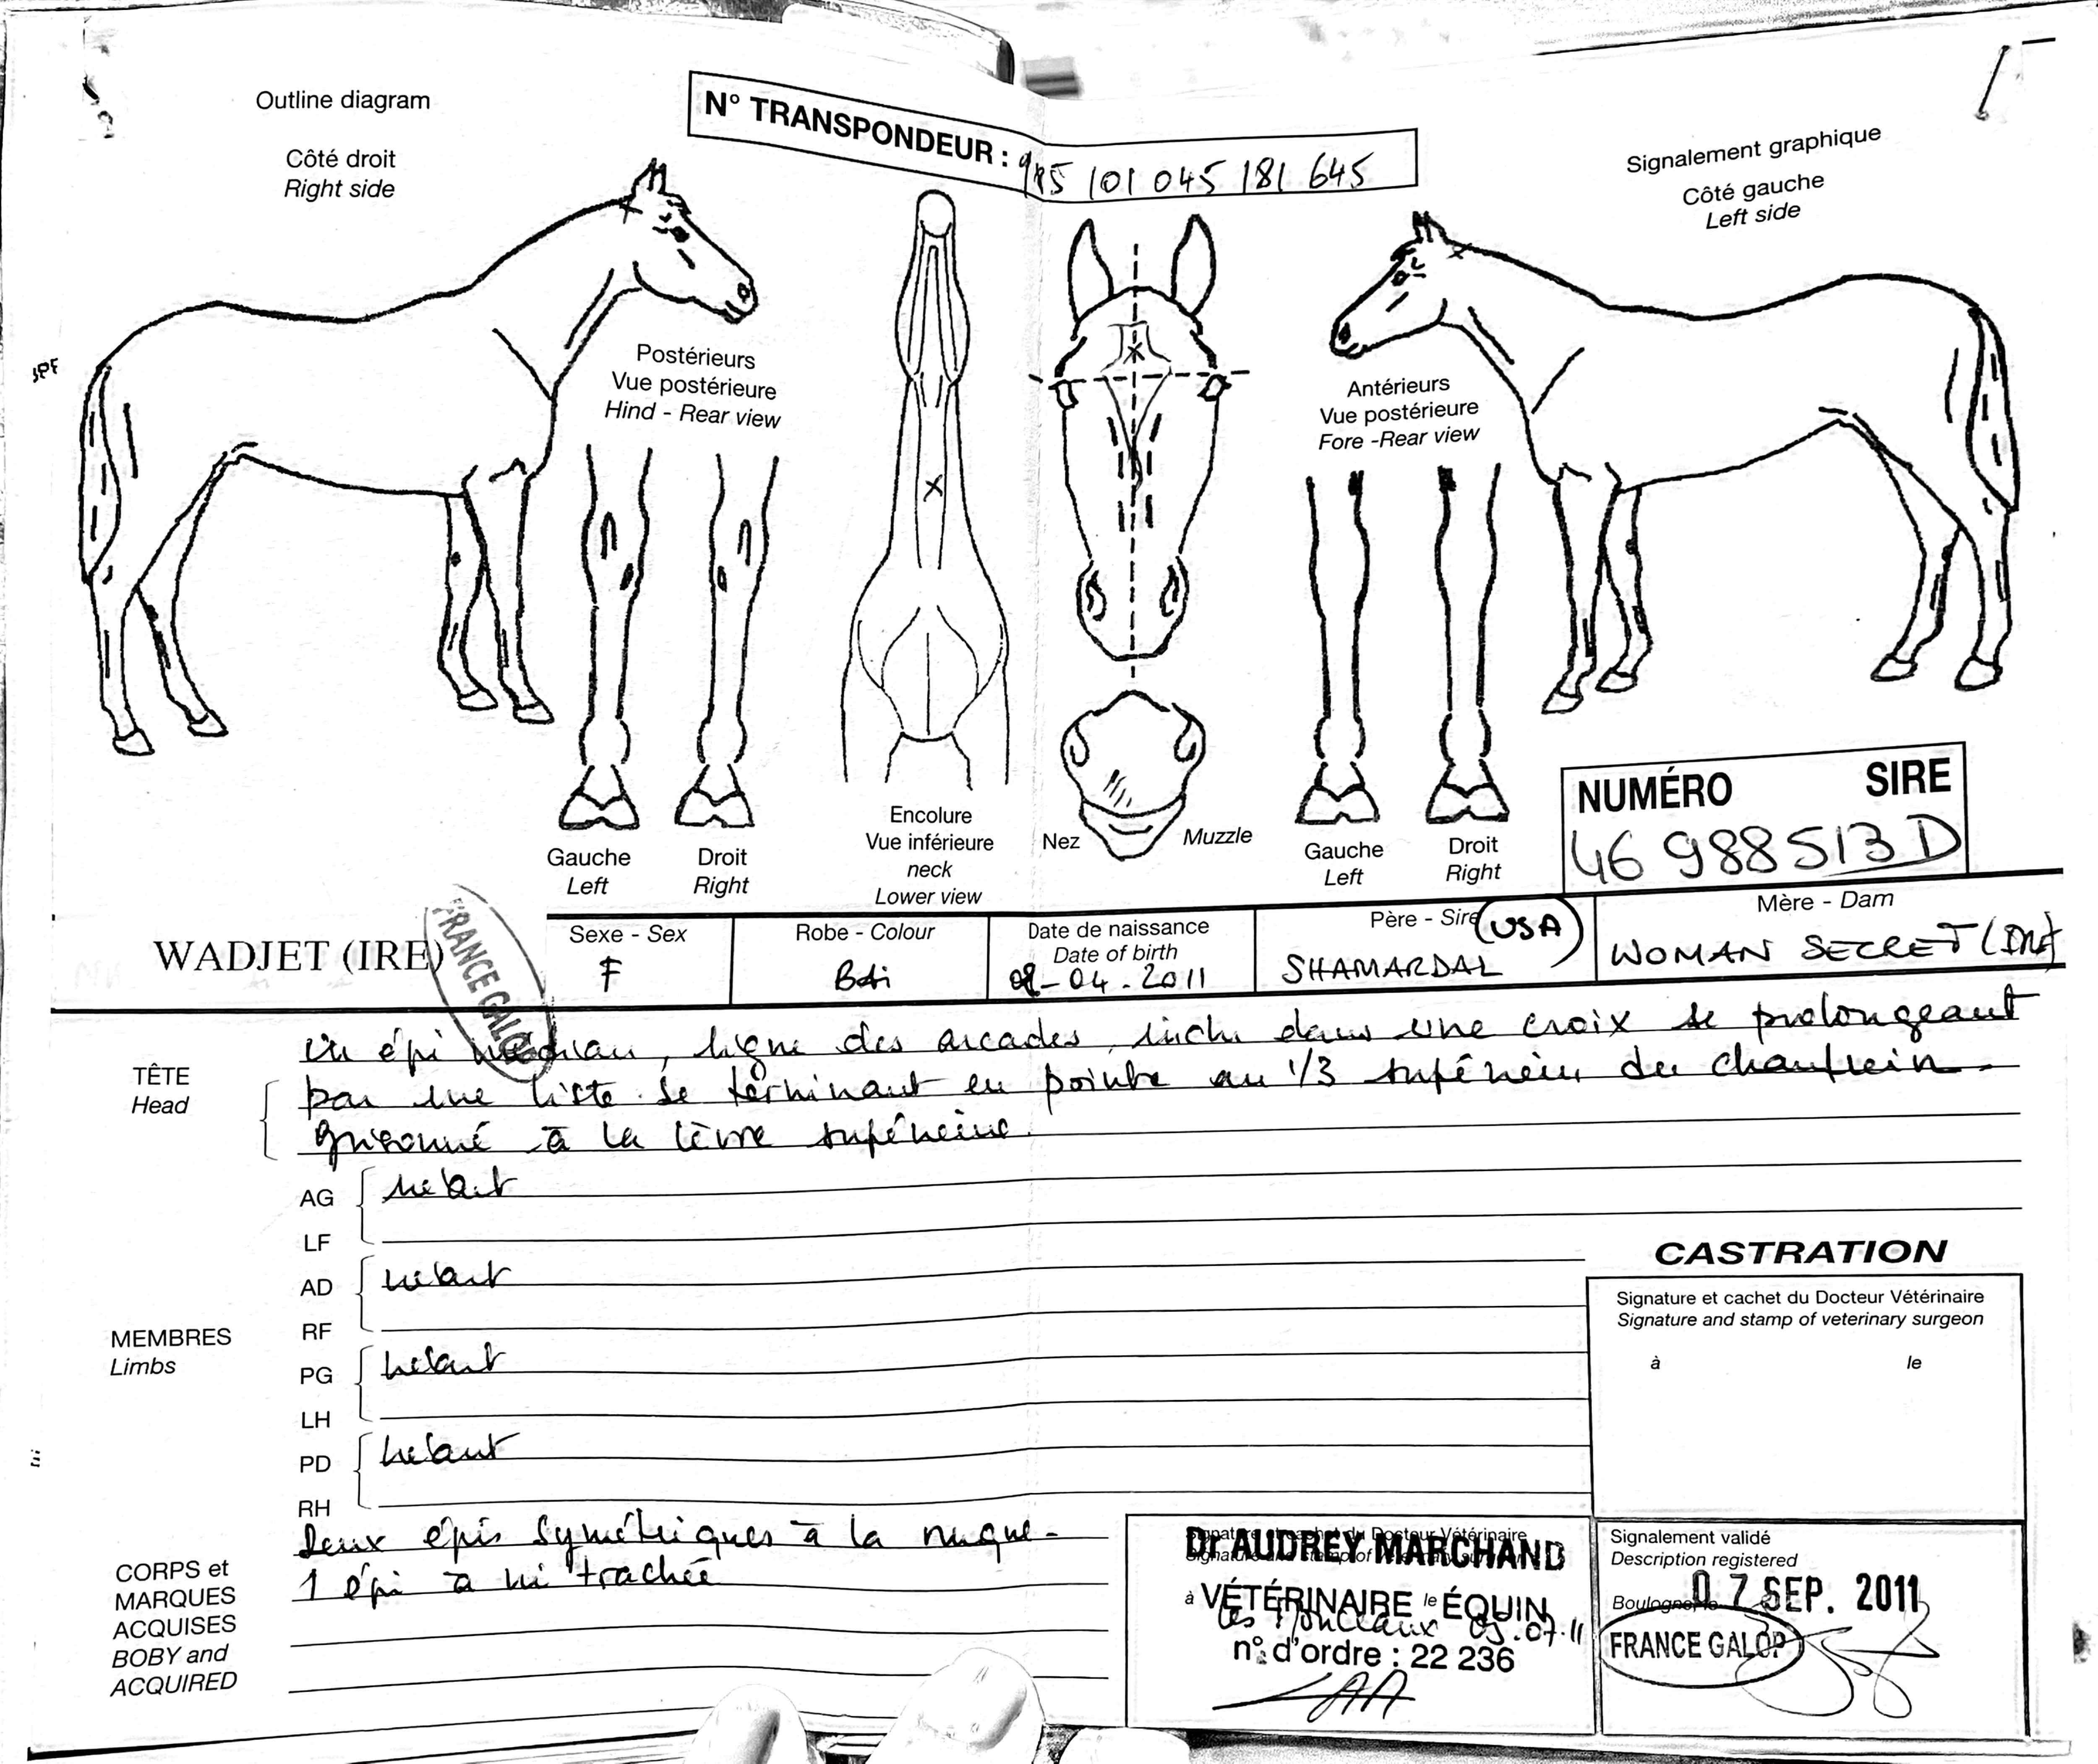 Outline diagram
Côté droit
Right side
N° TRANSPONDEUR :
101 045 181 645
Signalement graphique
Côté gauche
Left side
Postérieurs
Vue postérieure
Hind - Rear view
Antérieurs
Vue postérieure
Fore -Rear view
Gauche
Left
Droit
Right
Encolure
Vue inférieure
neck
Lower view
Nez
Muzzle
Gauche
Left
Droit
Right
NUMÉRO SIRE
46 988 513 D
WADJET (IRE)
FRANCE GALOP
Sexe - Sex
F
Robe - Colour
BAi
Date de naissance
Date of birth
04.2011
Père - Sire (USA)
SHAMARDAL
Mère - Dam
WOMAN SECRET (IRE)
TÊTE
Head
Un épi médian, ligne des arcades, inclu dans une croix se prolongeant
par une liste se terminant en pointe au 1/3 supérieur du chanfrein.
grisonné à la lèvre supérieure.
MEMBRES
Limbs
AG néant
LF
AD néant
RF
PG néant
LH
PD néant
RH
CORPS et
MARQUES
ACQUISES
BOBY and
ACQUIRED
Deux épis symétriques à la nuque.
1 épi à mi trachée
CASTRATION
Signature et cachet du Docteur Vétérinaire
Signature and stamp of veterinary surgeon
à le
Signature et cachet du Docteur Vétérinaire
Signature and stamp of veterinary surgeon
Dr AUDREY MARCHAND
à VÉTÉRINAIRE le ÉQUIN
Les Monceaux 05.07.11
n° d'ordre : 22 236
Signalement validé
Description registered
Boulogne, le 07 SEP. 2011
FRANCE GALOP